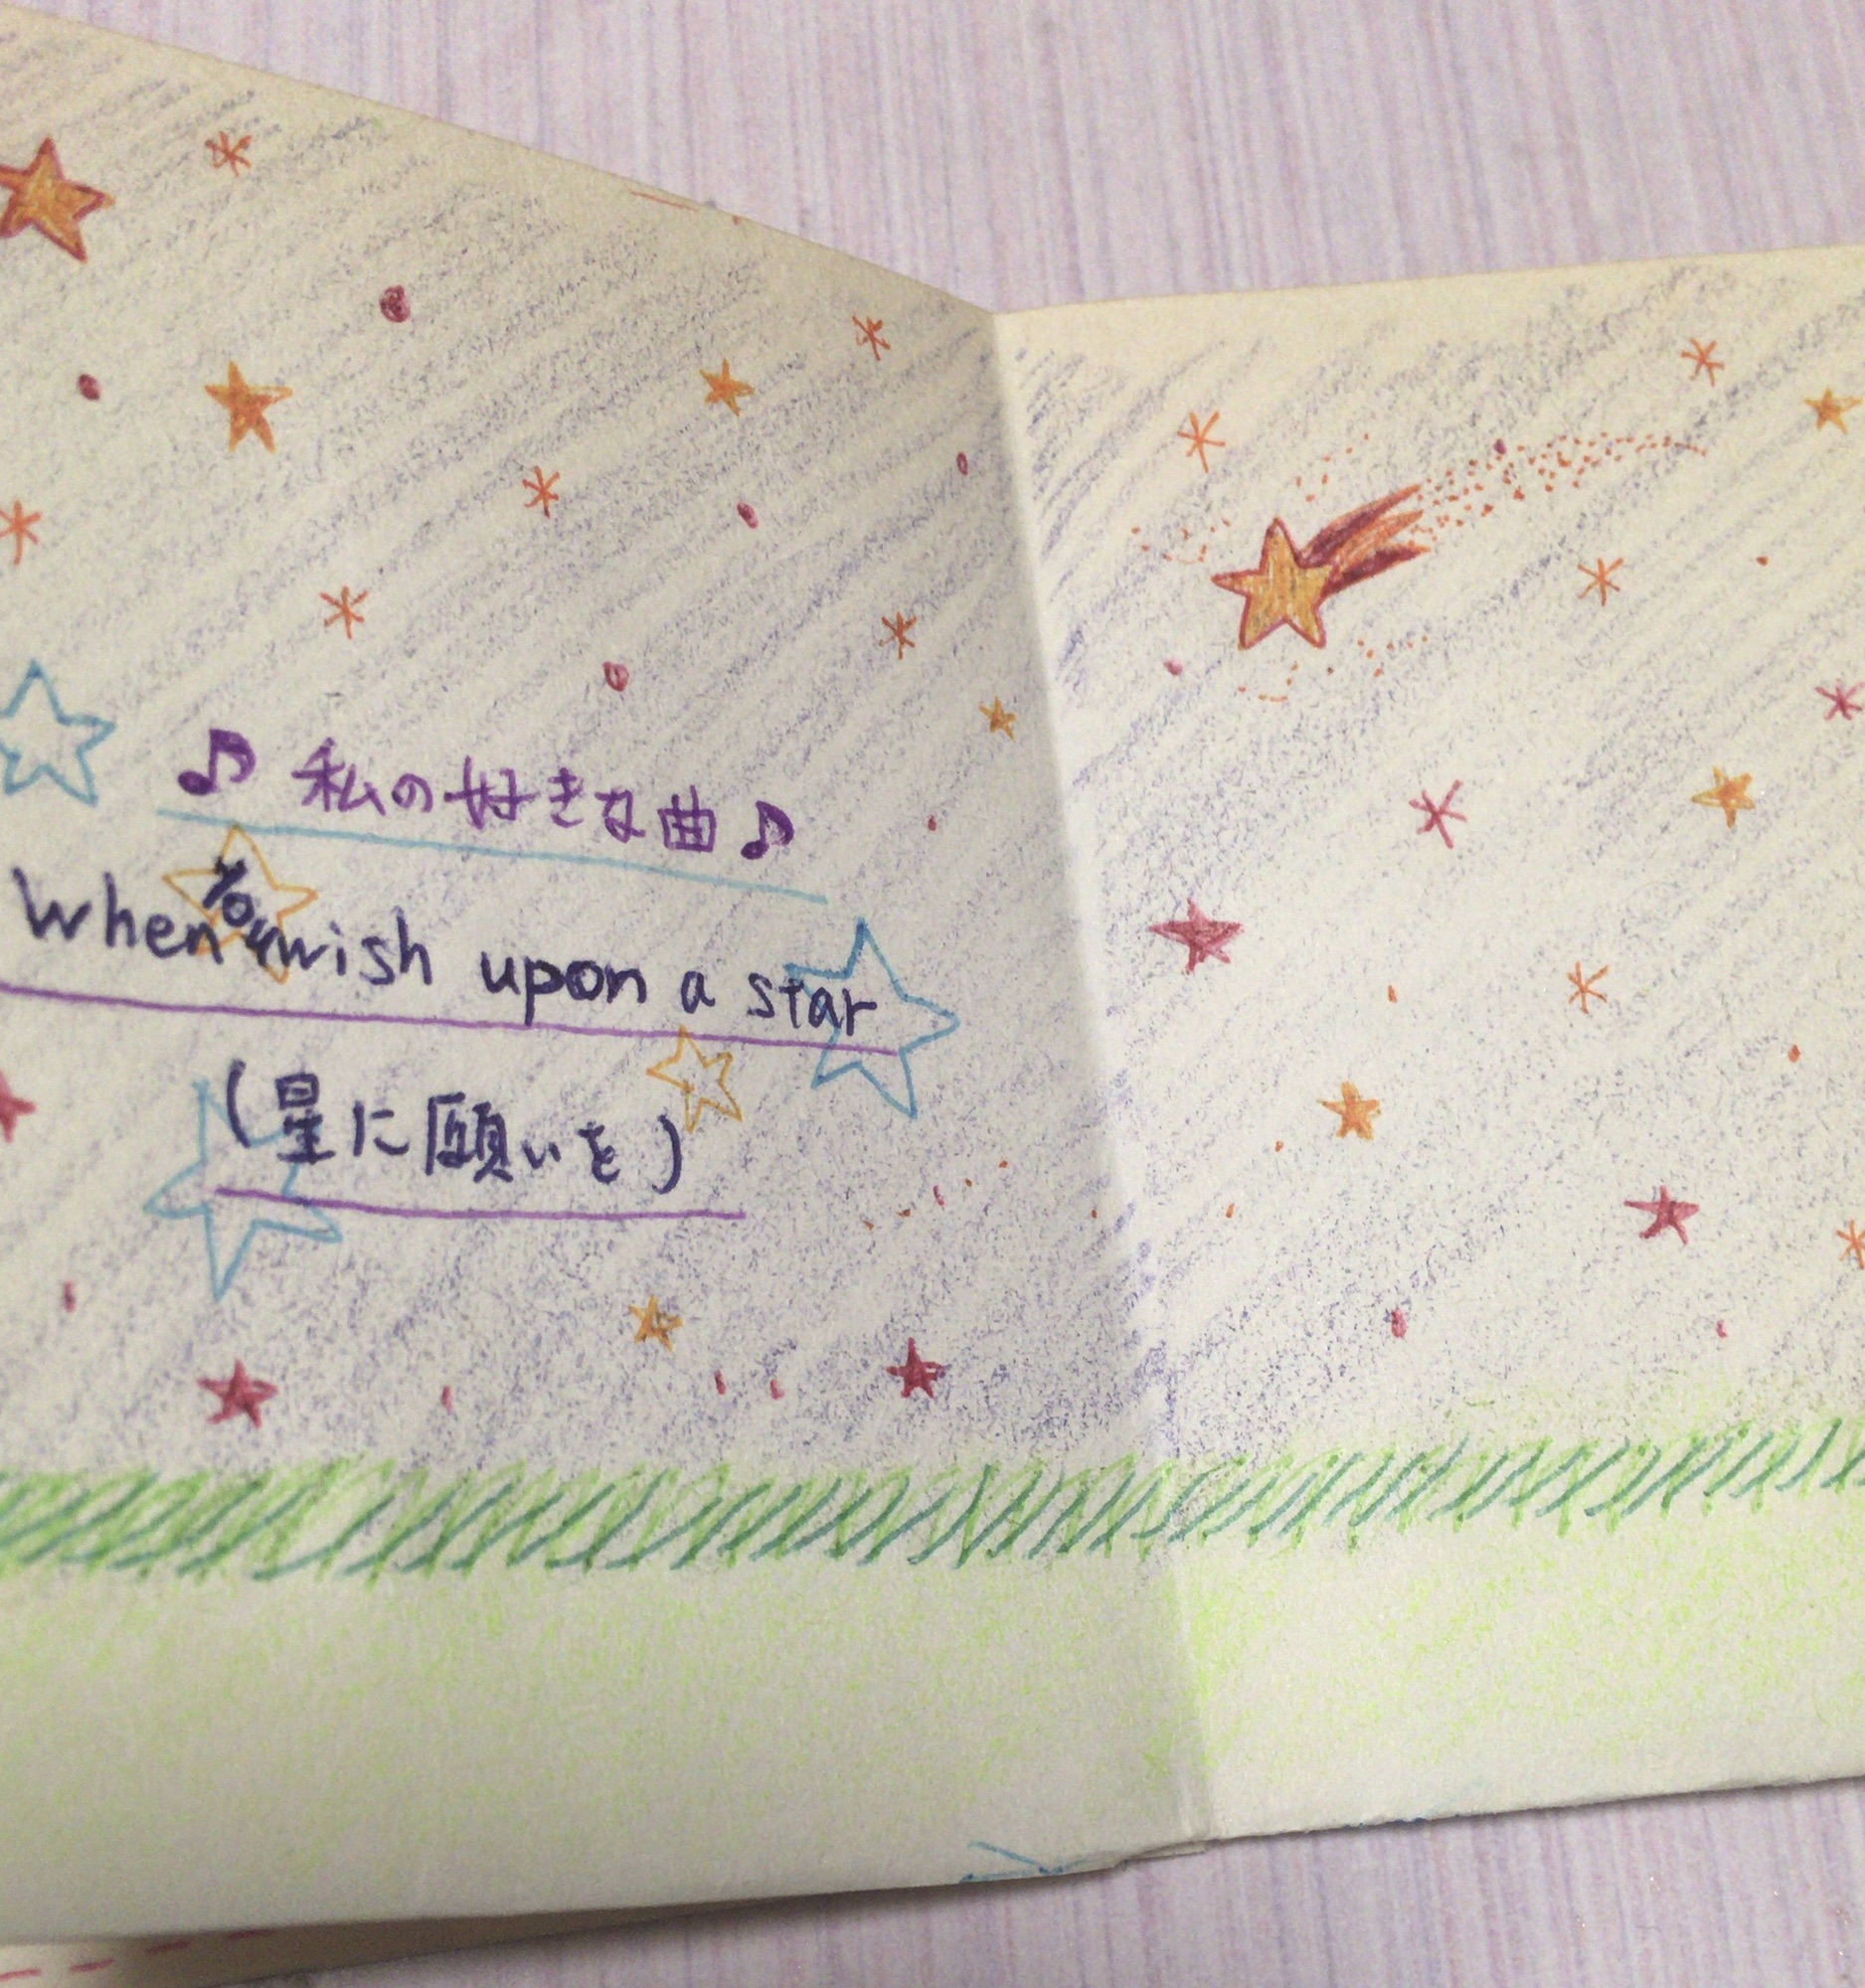 ♪ 私の好きな曲 ♪
When you wish upon a star
(星に願いを)